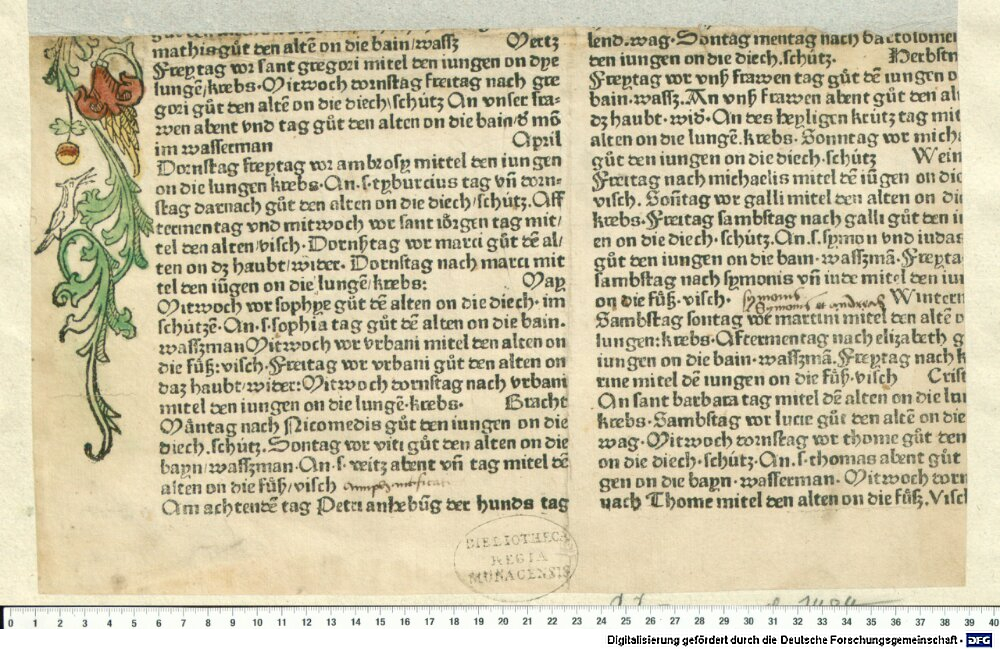 mathis gůt den altē on die bain/wassz Mertz
Freytag vor sant gregori mitel den iungen on dye
lungē/krebs·Mitwoch dornstag freitag nach gre
gori gůt den altē on die diech/schütz An vnser fra⸗
wen abent vnd tag gůt den alten on die bain/d mō
im wasserman April
Dornstag freytag vor ambrosy mittel den iungen
on die lungen krebs·An·s·tyburcius tag vn̄ dorn⸗
stag darnach gůt den alten on die diech/schütz·Aff
termentag vnd mitwoch vor sant iörgen tag mit/
tel den alten/visch·Dornstag vor marci gůt dē al/
ten on dz haubt/wider·Dornstag nach marci mit
tel den iūgen on die lungē/krebs: May
Mitwoch vor sophye gůt dē alten on die diech·im
schützē·An·s·sophia tag gůt dē alten on die bain·
wasszman Mitwoch vor vrbani mitel den alten on
die füß:visch·Freitag vor vrbani gůt den alten on
daz haubt/wider:Mitwoch dornstag nach vrbani
mitel den iungen on die lungē·krebs· Bracht
Mântag nach Nicomedis gůt den iungen on die
diech·schütz·Sontag vor viti gůt den alten on die
bayn/wasszman·An·s·veitz abent vn̄ tag mitel dē
alten on die füß/visch
Am achtendē tag Petri anhebūg der hunds tag
lend·wag·Sontag mentag nach bartolomei
den iungen on die diech·schütz· Herbstm
Freytag vor vnß frawen tag gůt dē iungen o
bain·wassz·An vnß frawen abent gůt den al
dz haubt·wid·An des heyligen krütz tag mit
alten on die lungē·krebs·Sonntag vor micha
gůt den iungen on die diech·schütz Wein
Freitag nach michaelis mitel dē iūgen on die
visch·Son̄tag vor galli mitel den alten on die
krebs·Freitag sambstag nach galli gůt den i
en on die diech·schütz·An·s·symon vnd iudas
gůt den iungen on die bain·wasszmā·Freyta
sambstag nach symonis vn̄ iude mitel den iu
on die füß·visch· symonis Wintern
symonis et andreas
Sambstag sontag vor martini mitel den altē o
lungen:krebs·Aftermentag nach elizabeth g
iungen on die bain·wasszmā·Freytag nach k
rine mitel dē iungen on die füß·visch Crist
An sant barbara tag mitel dē alten on die lu
krebs·Sambstag vor lucie gůt den altē on die
wag·Mitwoch dornstag vor thome gůt den
on die diech·schütz·An·s·thomas abent gůt
gen on die bayn·wasserman·Mitwoch dorn
nach Thome mitel den alten on die füß·Visch
BIBLIOTHECA
REGIA
MONACENSIS
0 1 2 3 4 5 6 7 8 9 10 11 12 13 14 15 16 17 18 19 20 21 22 23 24 25 26 27 28 29 30 31 32 33 34 35 36 37 38 39 40
Digitalisierung gefördert durch die Deutsche Forschungsgemeinschaft - DFG